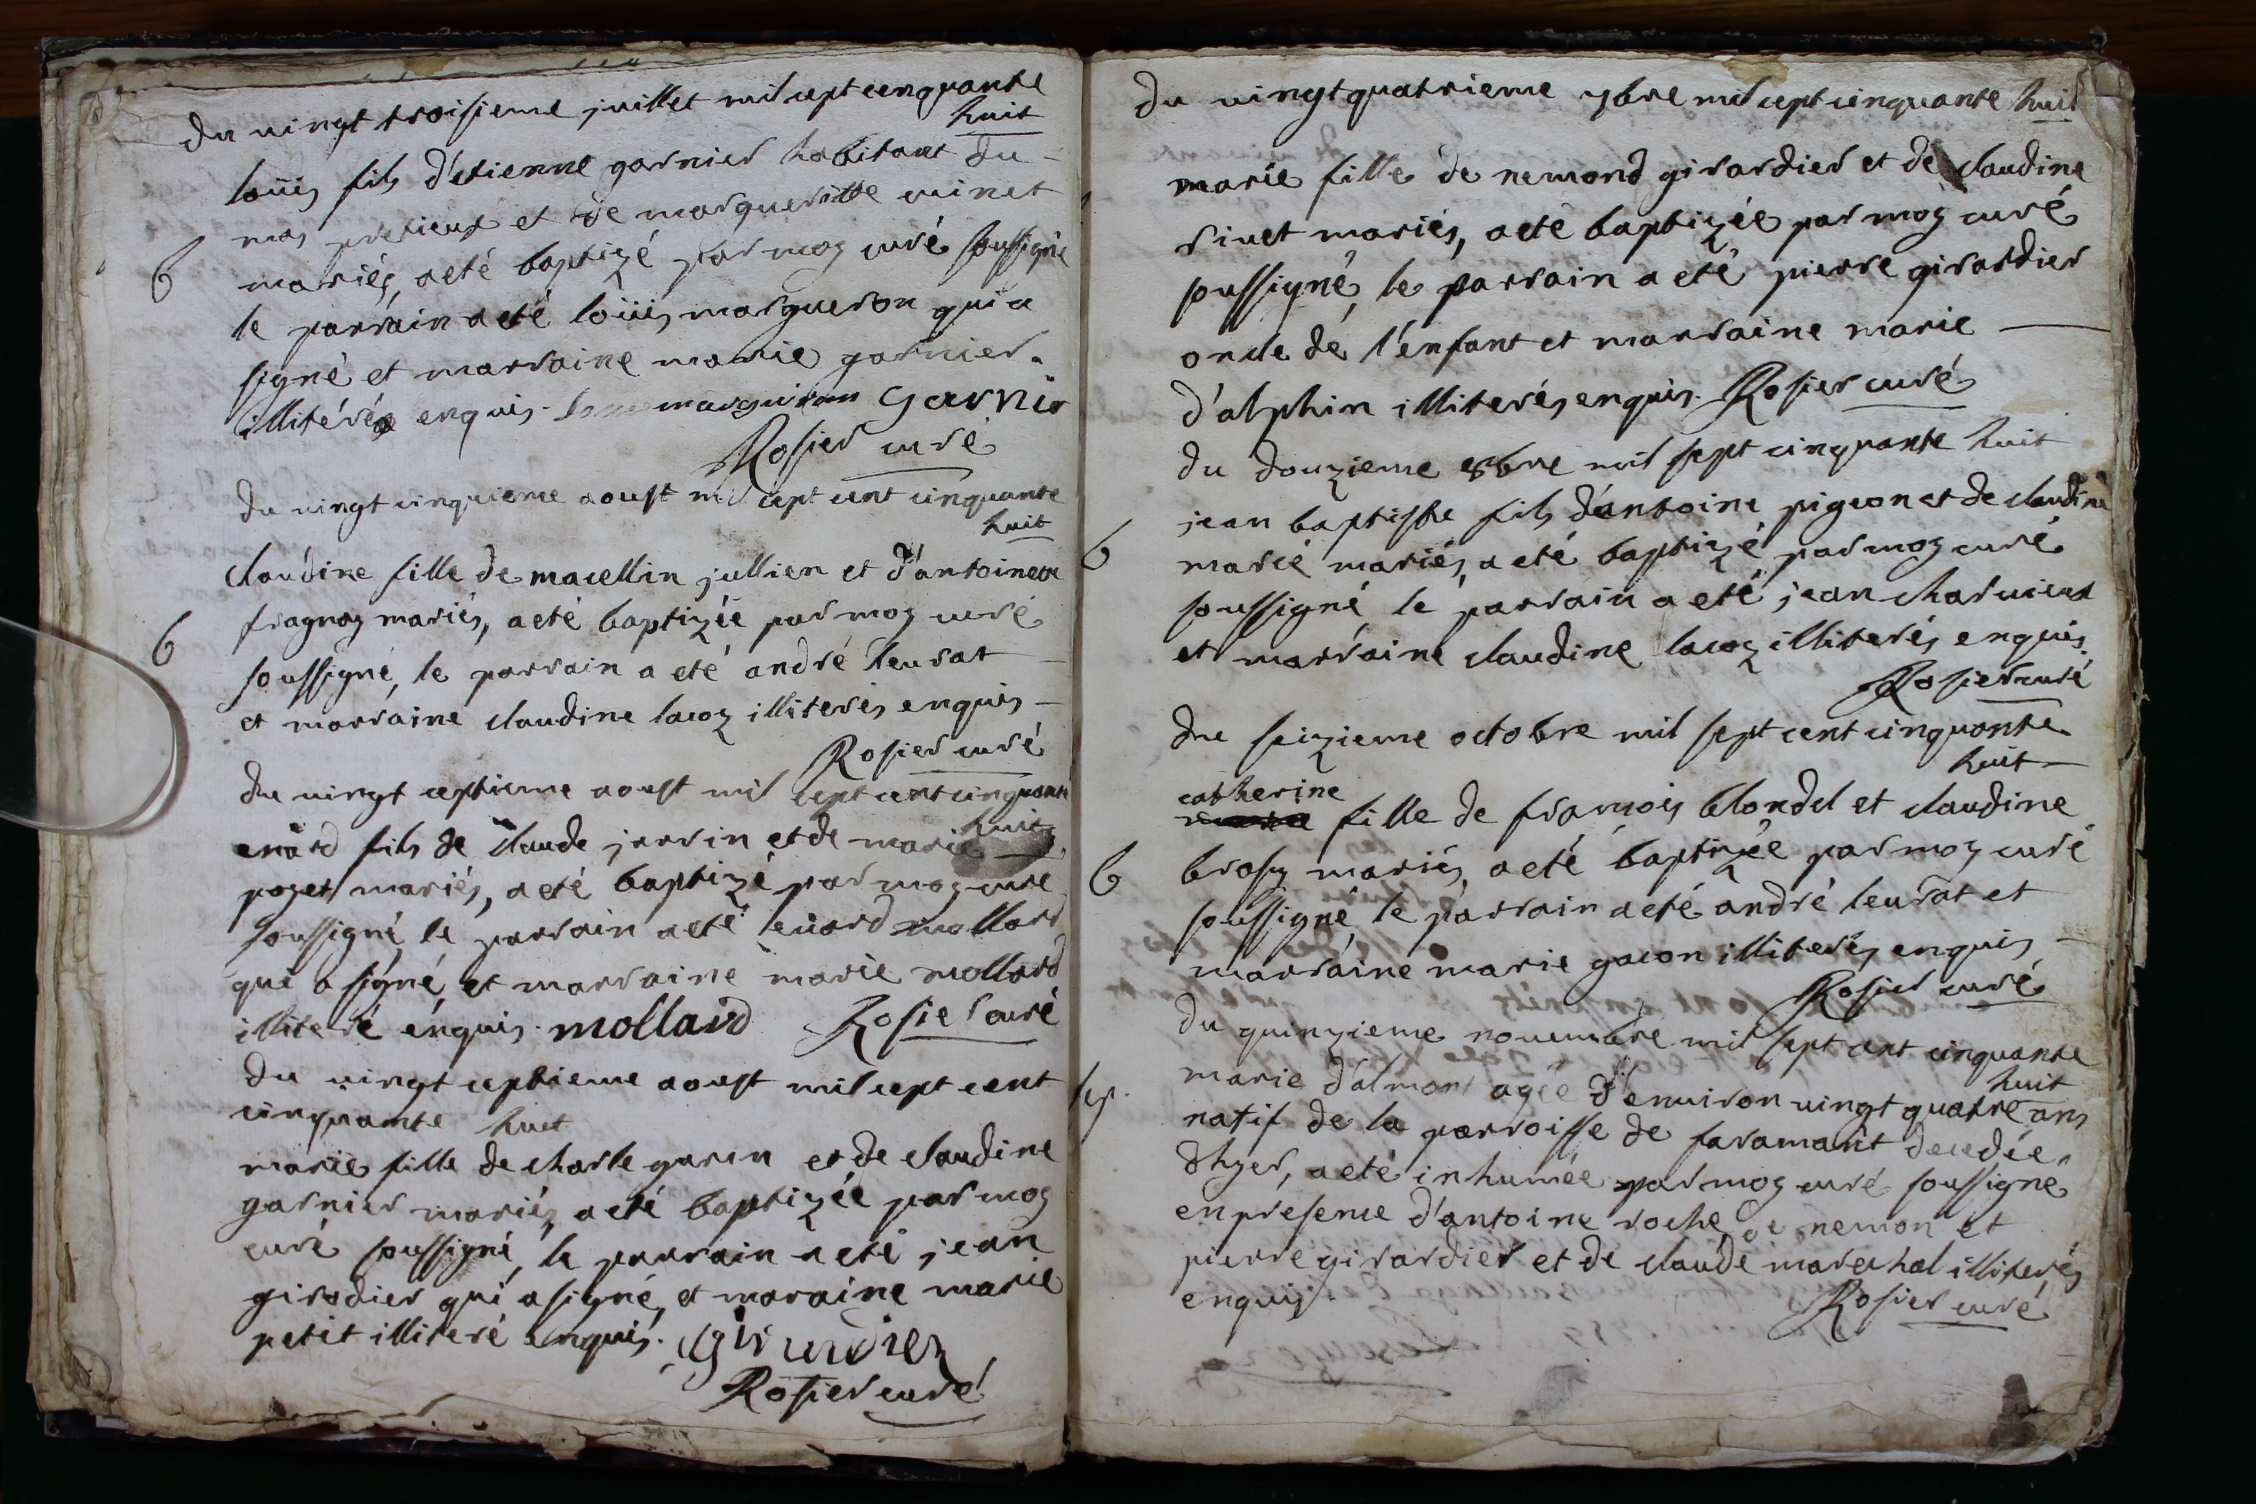 du vingt troisieme juillet mil cept cenquante
huit
loüis fils d'etienne garnier habitant du
mas pretieux et de margueritte vinet
b
mariés, a eté baptizé par moy curé soussigné
le parrain a eté loüis margueron qui a
signé et marraine marie garnier
illitérée enquis. margueron Garnier
Rosier curé
du vingt cinquieme aoust mil cept cent cinquante
huit
claudine fille de macellin jullien et d'antoinette
b
fragnoy mariés, a eté baptizée par moy curé
soussigné, le parrain a eté andré leurat
et marraine claudine lacoz illiterés enquis
Rosier curé
du vingt ceptieme aoust mil cept cent cinquante
huit
enard fils de claude jerrin et de marie
poyet mariés, a eté baptizé par moy curé
soussigné le parrain a eté lenard mollard
qui a signé et marraine marie mollard
illiteré enquis. mollard Rosier curé
du vingt ceptieme aoust mil cept cent
cinquante huit
marie fille de charle garen et de claudine
garnier mariés, a eté baptizée par moy
curé soussigné, le parrain a eté jean
girodier qui a signé, et maraine marie
petit illiteré enquis. girardier
Rosier curé
du vingt quatrieme 7bre mil cept cinquante huit
marie fille de nemond girardier et de claudine
rivet mariés, a eté baptizée par moy curé
soussigné, le parrain a eté pierre girardier
oncle de l'enfant et marraine marie
d'alphin illiterés enquis. Rosier curé
du douzieme 8bre mil sept cinquante huit
jean baptiste fils d'antoine pigeon et de claudine
b
marié mariés, a eté baptizé par moy curé
soussigné le parrain a eté jean charvieux
et marraine claudine lacoz illiterés enquis.
Rosier curé
du seizieme octobre mil sept cent cinquante
huit
catherine
fille de françois blondel et claudine
b
brosy mariés, a eté baptizée par moy curé
soussigné, le parrain a eté andré leurat et
marraine marie gacon illiterés enquis
Rosier curé
du quinzieme novembre mil sept cent cinquante
huit
sep.
marie d'almon agée d'environ vingt quatre ans
natif de la parroisse de faramant decedée
d'hyer, a eté inhumée par moy curé soussigné
en presence d'antoine roche de nemon et
pierre girardier et de claude marechal illiterés
enquis. Rosier curé